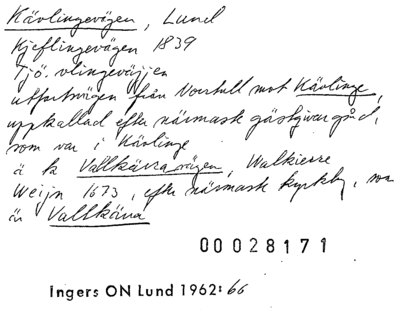 Kävlingevägen, Lund
Kjeflingevägen 1839
Tjö. vlingevägjen
utfartsvägen från Norrtull mot Kävlinge,
uppkallad efter närmast gästgivargård,
som var i Kävlinge
ä k Vallkärravägen, Walkierre
Weijn 1673, efter närmast kyrkby, som
är Vallkärra
00028171
Ingers ON Lund 1962: 66